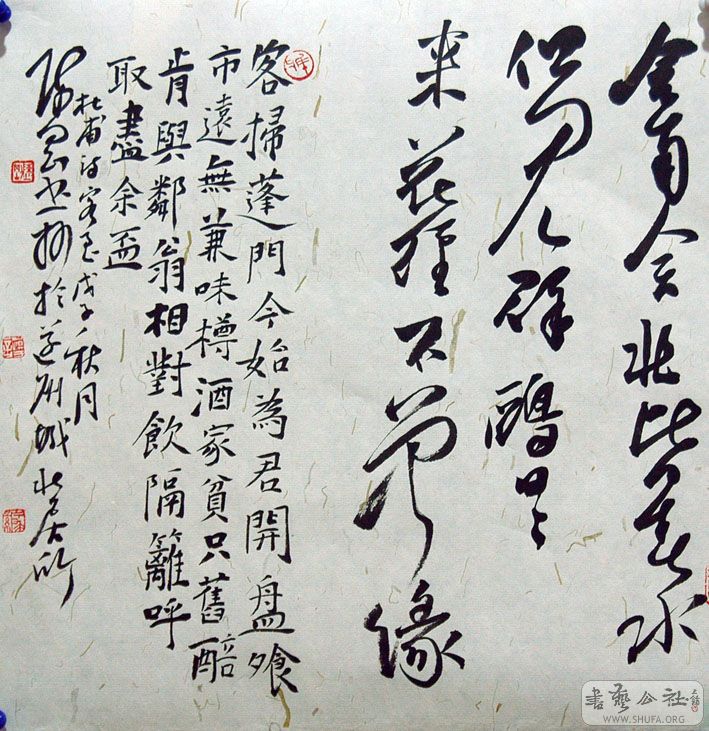 舍南舍北皆春水
但見群鷗日日
來花徑不曾緣
客掃蓬門今始為君開盤飱
市遠無兼味樽酒家貧只舊醅
肯與鄰翁相對飲隔籬呼
取盡余盃
杜甫詩客至戊子秋月
於城北居所
書藝公社
WWW.SHUFA.ORG